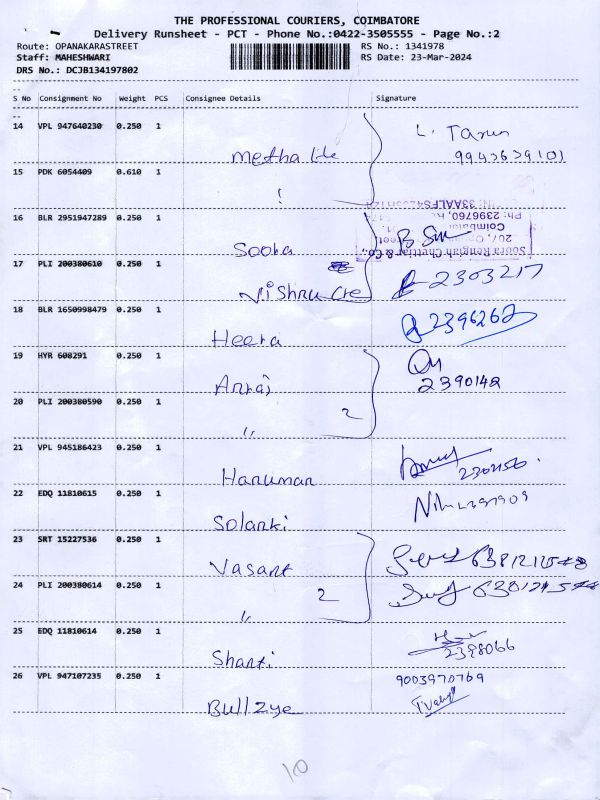 THE PROFESSIONAL COURIERS, COIMBATORE
Delivery Runsheet - PCT - Phone No.:0422-3505555 - Page No.:2
Route: OPANAKARASTREET RS No.: 1341978
Staff: MAHESHWARI RS Date: 23-Mar-2024
DRS No.: DCJB134197802
S No Consignment No Weight PCS Consignee Details Signature
14 VPL 947640230 0.250 1
L. Tarun
9943639101
15 PDK 6054409 0.610 1
16 BLR 2951947289 0.250 1
Soora
Soora Rengiah Chettiar & Co.,
17 PLI 200380610 0.250 1
2303217
18 BLR 1650998479 0.250 1
Heera 2396262
19 HYR 608291 0.250 1
2390142
20 PLI 200380590 0.250 1
2
"
21 VPL 945186423 0.250 1
Hanuman
22 EDQ 11810615 0.250 1
Solanki
23 SRT 15227536 0.250 1
Vasant
24 PLI 200380614 0.250 1
2
"
25 EDQ 11810614 0.250 1
Shanti 2398066
26 VPL 947107235 0.250 1
9003970769
Bullzye
10